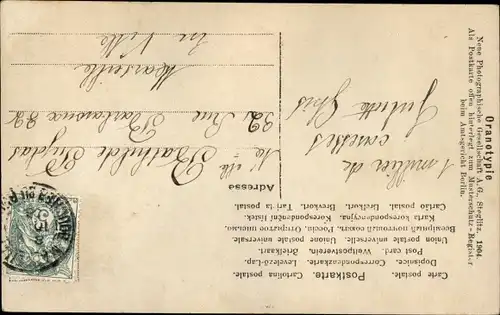 Oranotypie
Neue Photographische Gesellschaft A.G., Steglitz. 1904.
Als Postkarte offen hinterlegt zum Musterschutz-Register
beim Amtsgericht Berlin.
Postkarte.
Carte postale. Cartolina postale.
Dopisnice. Correspondenzkarte. Levelező-Lap.
Post card. Weltpostverein. Briefkaart.
Union postale universelle. Unione postale universale.
Всемірный почтовый союзъ. Россія. Открытое письмо.
Karta korespondencyjna. Korespondenční lístek.
Cartão postal. Brevkort. Brefkort. Tarjeta postal.
Adresse
1 millier de
caresses
Juliette
Mlle
Bathilde
32 Rue 32
Marseille
En Ville